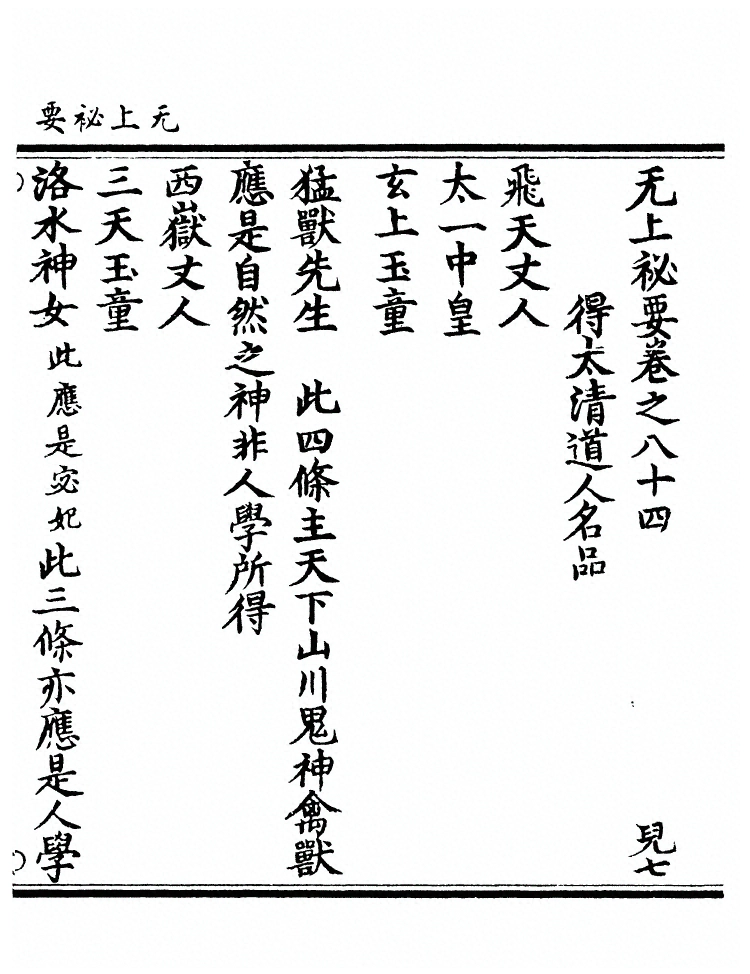 无上祕要
无上祕要卷之八十四　兒七
得太清道人名品
飛天丈人
太一中皇
玄上玉童
猛獸先生　此四條主天下山川鬼神禽獸
應是自然之神非人學所得
西嶽丈人
三天玉童
洛水神女此應是宓妃此三條亦應是人學